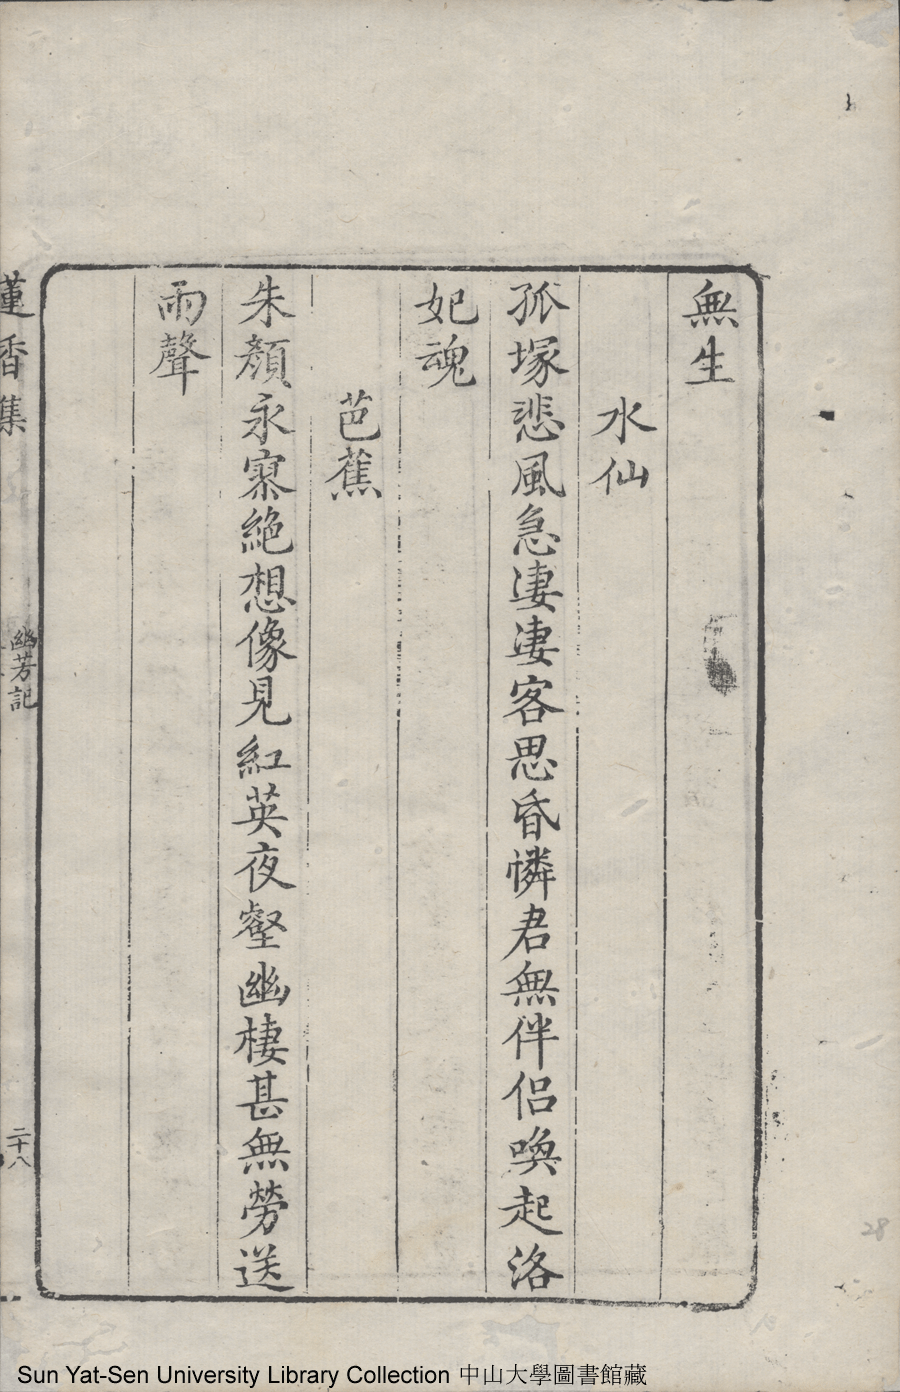 無生
水仙
孤塚悲風急淒淒客思昏憐君無伴侶喚起洛
妃魂
芭蕉
朱顏永寂絕想像見紅英夜壑幽棲甚無勞送
雨聲
蓮香集
幽芳記
二十八
28
Sun Yat-Sen University Library Collection 中山大學圖書館藏